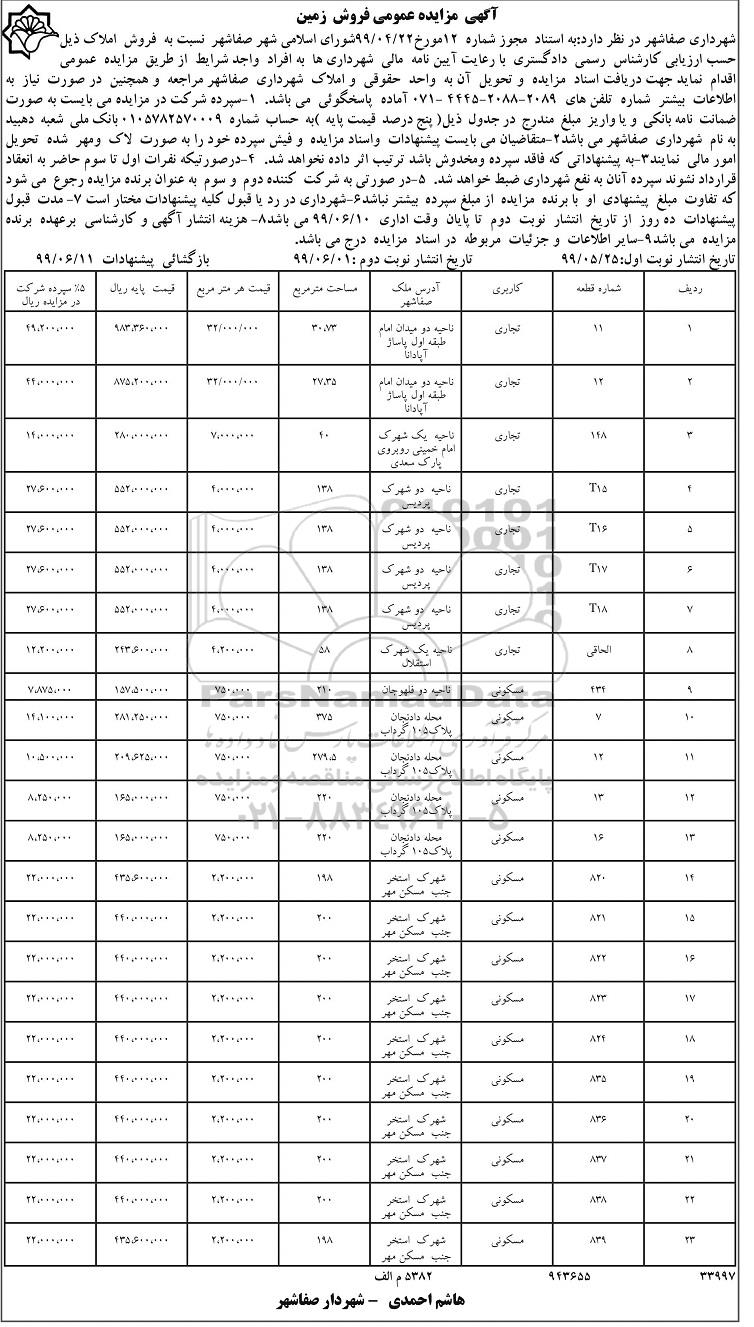 آگهی مزایده عمومی فروش زمین
شهرداری صفاشهر در نظر دارد:به استناد مجوز شماره ۱۲مورخ۹۹/۰۴/۲۲شورای اسلامی شهر صفاشهر نسبت به فروش املاک ذیل
حسب ارزیابی کارشناس رسمی دادگستری با رعایت آیین نامه مالی شهرداری ها به افراد واجد شرایط از طریق مزایده عمومی
اقدام نماید جهت دریافت اسناد مزایده و تحویل آن به واحد حقوقی و املاک شهرداری صفاشهر مراجعه و همچنین در صورت نیاز به
اطلاعات بیشتر شماره تلفن های ۲۰۸۹-۲۰۸۸-۴۴۴۵-۰۷۱ آماده پاسخگوئی می باشد. ۱-سپرده شرکت در مزایده می بایست به صورت
ضمانت نامه بانکی و یا واریز مبلغ مندرج در جدول ذیل( پنج درصد قیمت پایه )به حساب شماره ۰۱۰۵۷۸۲۵۷۰۰۰۹ بانک ملی شعبه دهبید
به نام شهرداری صفاشهر می باشد۲-متقاضیان می بایست پیشنهادات واسناد مزایده و فیش سپرده خود را به صورت لاک ومهر شده تحویل
امور مالی نمایند۳-به پیشنهاداتی که فاقد سپرده ومخدوش باشد ترتیب اثر داده نخواهد شد. ۴-درصورتیکه نفرات اول تا سوم حاضر به انعقاد
قرارداد نشوند سپرده آنان به نفع شهرداری ضبط خواهد شد. ۵-در صورتی به شرکت کننده دوم و سوم به عنوان برنده مزایده رجوع می شود
که تفاوت مبلغ پیشنهادی او با برنده مزایده از مبلغ سپرده بیشتر نباشد۶-شهرداری در رد یا قبول کلیه پیشنهادات مختار است ۷-مدت قبول
پیشنهادات ده روز از تاریخ انتشار نوبت دوم تا پایان وقت اداری ۹۹/۰۶/۱۰ می باشد۸-هزینه انتشار آگهی و کارشناسی برعهده برنده
مزایده می باشد۹-سایر اطلاعات و جزئیات مربوطه در اسناد مزایده درج می باشد.
تاریخ انتشار نوبت اول:۹۹/۰۵/۲۵ تاریخ انتشار نوبت دوم :۹۹/۰۶/۰۱ بازگشائی پیشنهادات ۹۹/۰۶/۱۱
ردیف شماره قطعه کاربری آدرس ملک صفاشهر مساحت مترمربع قیمت هر متر مربع قیمت پایه ریال ۵٪ سپرده شرکت در مزایده ریال
۱ ۱۱ تجاری ناحیه دو میدان امام طبقه اول پاساژ آپادانا ۳۰.۷۳ ۳۲/۰۰۰/۰۰۰ ۹۸۳.۳۶۰.۰۰۰ ۴۹.۲۰۰.۰۰۰
۲ ۱۲ تجاری ناحیه دو میدان امام طبقه اول پاساژ آپادانا ۲۷.۳۵ ۳۲/۰۰۰/۰۰۰ ۸۷۵.۲۰۰.۰۰۰ ۴۴.۰۰۰.۰۰۰
۳ ۱۴۸ تجاری ناحیه یک شهرک امام خمینی روبروی پارک سعدی ۴۰ ۷.۰۰۰.۰۰۰ ۲۸۰.۰۰۰.۰۰۰ ۱۴.۰۰۰.۰۰۰
۴ T۱۵ تجاری ناحیه دو شهرک پردیس ۱۳۸ ۴.۰۰۰.۰۰۰ ۵۵۲.۰۰۰.۰۰۰ ۲۷.۶۰۰.۰۰۰
۵ T۱۶ تجاری ناحیه دو شهرک پردیس ۱۳۸ ۴.۰۰۰.۰۰۰ ۵۵۲.۰۰۰.۰۰۰ ۲۷.۶۰۰.۰۰۰
۶ T۱۷ تجاری ناحیه دو شهرک پردیس ۱۳۸ ۴.۰۰۰.۰۰۰ ۵۵۲.۰۰۰.۰۰۰ ۲۷.۶۰۰.۰۰۰
۷ T۱۸ تجاری ناحیه دو شهرک پردیس ۱۳۸ ۴.۰۰۰.۰۰۰ ۵۵۲.۰۰۰.۰۰۰ ۲۷.۶۰۰.۰۰۰
۸ الحاقی تجاری ناحیه یک شهرک استقلال ۵۸ ۴.۲۰۰.۰۰۰ ۲۴۳.۶۰۰.۰۰۰ ۱۲.۲۰۰.۰۰۰
۹ ۴۳۴ مسکونی ناحیه دو قلهوچان ۲۱۰ ۷۵۰.۰۰۰ ۱۵۷.۵۰۰.۰۰۰ ۷.۸۷۵.۰۰۰
۱۰ ۷ مسکونی محله دادنجان پلاک۱۰۵ گرداب ۳۷۵ ۷۵۰.۰۰۰ ۲۸۱.۲۵۰.۰۰۰ ۱۴.۱۰۰.۰۰۰
۱۱ ۱۲ مسکونی محله دادنجان پلاک۱۰۵ گرداب ۲۷۹.۵ ۷۵۰.۰۰۰ ۲۰۹.۶۲۵.۰۰۰ ۱۰.۵۰۰.۰۰۰
۱۲ ۱۳ مسکونی محله دادنجان پلاک۱۰۵ گرداب ۲۲۰ ۷۵۰.۰۰۰ ۱۶۵.۰۰۰.۰۰۰ ۸.۲۵۰.۰۰۰
۱۳ ۱۶ مسکونی محله دادنجان پلاک۱۰۵ گرداب ۲۲۰ ۷۵۰.۰۰۰ ۱۶۵.۰۰۰.۰۰۰ ۸.۲۵۰.۰۰۰
۱۴ ۸۲۰ مسکونی شهرک استخر جنب مسکن مهر ۱۹۸ ۲.۲۰۰.۰۰۰ ۴۳۵.۶۰۰.۰۰۰ ۲۲.۰۰۰.۰۰۰
۱۵ ۸۲۱ مسکونی شهرک استخر جنب مسکن مهر ۲۰۰ ۲.۲۰۰.۰۰۰ ۴۴۰.۰۰۰.۰۰۰ ۲۲.۰۰۰.۰۰۰
۱۶ ۸۲۲ مسکونی شهرک استخر جنب مسکن مهر ۲۰۰ ۲.۲۰۰.۰۰۰ ۴۴۰.۰۰۰.۰۰۰ ۲۲.۰۰۰.۰۰۰
۱۷ ۸۲۳ مسکونی شهرک استخر جنب مسکن مهر ۲۰۰ ۲.۲۰۰.۰۰۰ ۴۴۰.۰۰۰.۰۰۰ ۲۲.۰۰۰.۰۰۰
۱۸ ۸۲۴ مسکونی شهرک استخر جنب مسکن مهر ۲۰۰ ۲.۲۰۰.۰۰۰ ۴۴۰.۰۰۰.۰۰۰ ۲۲.۰۰۰.۰۰۰
۱۹ ۸۳۵ مسکونی شهرک استخر جنب مسکن مهر ۲۰۰ ۲.۲۰۰.۰۰۰ ۴۴۰.۰۰۰.۰۰۰ ۲۲.۰۰۰.۰۰۰
۲۰ ۸۳۶ مسکونی شهرک استخر جنب مسکن مهر ۲۰۰ ۲.۲۰۰.۰۰۰ ۴۴۰.۰۰۰.۰۰۰ ۲۲.۰۰۰.۰۰۰
۲۱ ۸۳۷ مسکونی شهرک استخر جنب مسکن مهر ۲۰۰ ۲.۲۰۰.۰۰۰ ۴۴۰.۰۰۰.۰۰۰ ۲۲.۰۰۰.۰۰۰
۲۲ ۸۳۸ مسکونی شهرک استخر جنب مسکن مهر ۲۰۰ ۲.۲۰۰.۰۰۰ ۴۴۰.۰۰۰.۰۰۰ ۲۲.۰۰۰.۰۰۰
۲۳ ۸۳۹ مسکونی شهرک استخر جنب مسکن مهر ۱۹۸ ۲.۲۰۰.۰۰۰ ۴۳۵.۶۰۰.۰۰۰ ۲۲.۰۰۰.۰۰۰
۳۳۹۹۷ ۹۴۳۶۵۵ ۵۳۸۲ م الف
هاشم احمدی - شهردار صفاشهر
ParsNamadData
پایگاه اطلاع رسانی مناقصه و مزایده
۰۲۱-۸۸۳۴۹۶۷۰-۵